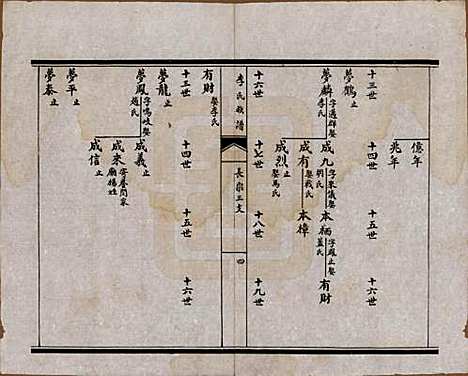 億年
兆年
十三世 十四世 十五世 十六世
夢鶴 止
夢麟 字遇群 娶李氏 成九 字來儀 娶劉氏 本栖 字鳳止 娶蓋氏 有財
成有 娶戰氏 本樟
成烈 娶馬氏 止
十六世 十七世 十八世 十九世
李氏族譜 長泉三支 四
有財 娶李氏
十三世 十四世 十五世 十六世
夢龍 止
夢鳳 字鳴岐 娶趙氏 成義 止
成來 安養閆家 廟楊姓
成信 止
夢平 止
夢泰 止